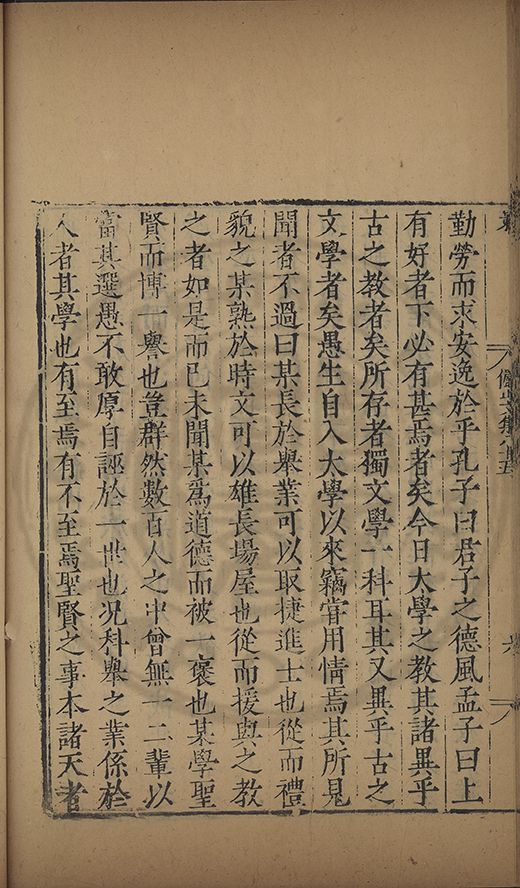 勤勞而求安逸於乎孔子曰君子之德風孟子曰上
有好者下必有甚焉者矣今日大學之教其諸異乎
古之教者矣所存者獨文學一科耳其又異乎古之
文學者矣愚生自入大學以來竊甞用情焉其所見
聞者不過曰某長於舉業可以取捷進士也從而禮
貌之某熟於時文可以雄長場屋也從而援與之教
之者如是而已未聞某爲道德而被一褒也某學聖
賢而博一譽也豈群然數百人之中曾無一二輩以
當其選愚不敢厚自誣於一世也况科舉之業係於
人者其學也有至焉有不至焉聖賢之事本諸天者